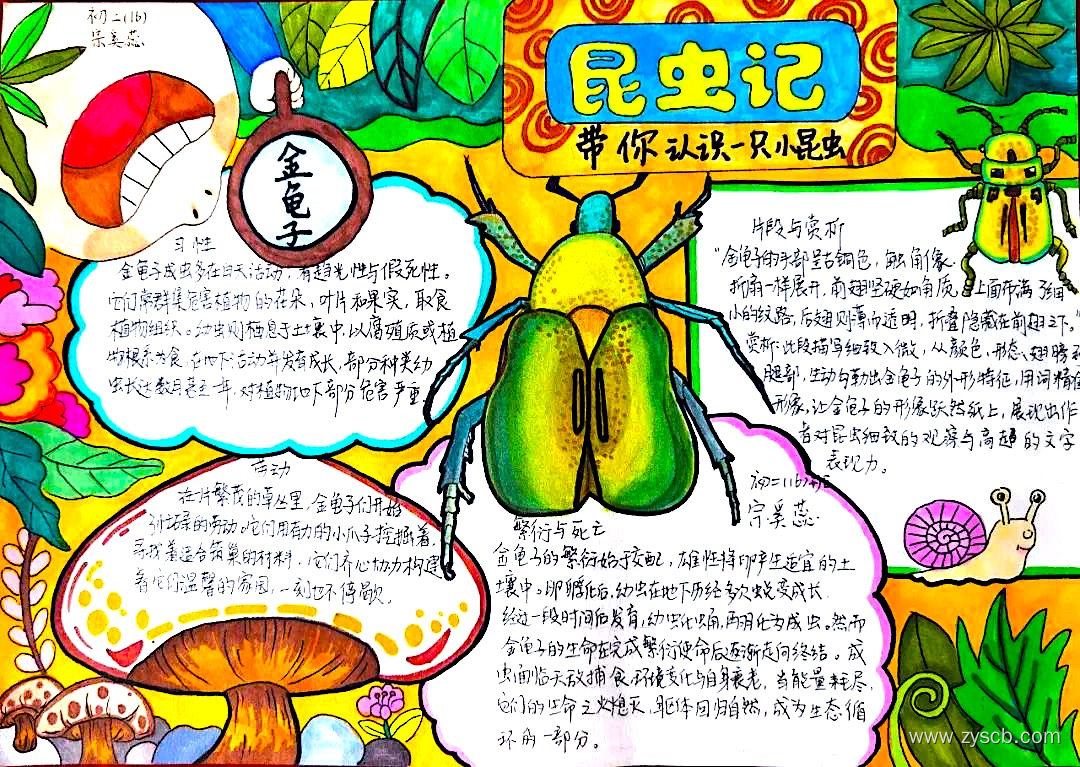 初二(16)
昆虫记
带你认识一只小昆虫
金龟子
习性
金龟子成虫多在白天活动,有趋光性与假死性。
它们常群集危害植物的花朵,叶片和果实,取食
植物组织。幼虫则栖息于土壤中,以腐殖质或植
物根系为食,在地下活动并发育成长,部分种类幼
虫长达数月甚至一年,对植物地下部分危害严重
片段与赏析
"金龟子的外部呈古铜色,触角像
折扇一样展开,前翅坚硬如角质,上面布满了细
小的纹路,后翅则薄而透明,折叠隐藏在前翅之下。"
赏析:此段描写细致入微,从颜色,形态、翅膀和
腿部,生动勾勒出金龟子的外形特征,用词精准
形象,让金龟子的形象跃然纸上,展现出作
者对昆虫细致的观察与高超的文字
表现力。
初二(16)班
宁奚蕊
劳动
在一片繁茂的草丛里,金龟子们开始
了忙碌的劳动。它们用有力的小爪子挖掘着,
寻找着适合筑巢的材料,它们齐心协力构建
着它们温馨的家园,一刻也不停歇。
繁衍与死亡
金龟子的繁衍始于交配,雌性将卵产生适宜的土
壤中。卵孵化后,幼虫在地下历经多次蜕变成长.
经过一段时间后发育,幼虫化蛹,再羽化为成虫。然而
金龟子的生命在完成繁衍使命后逐渐走向终结。成
虫面临天敌捕食、环境变化与自身衰老,当能量耗尽,
它们的生命之火熄灭,躯体回归自然,成为生态循
环的一部分。
www.zyscb.com